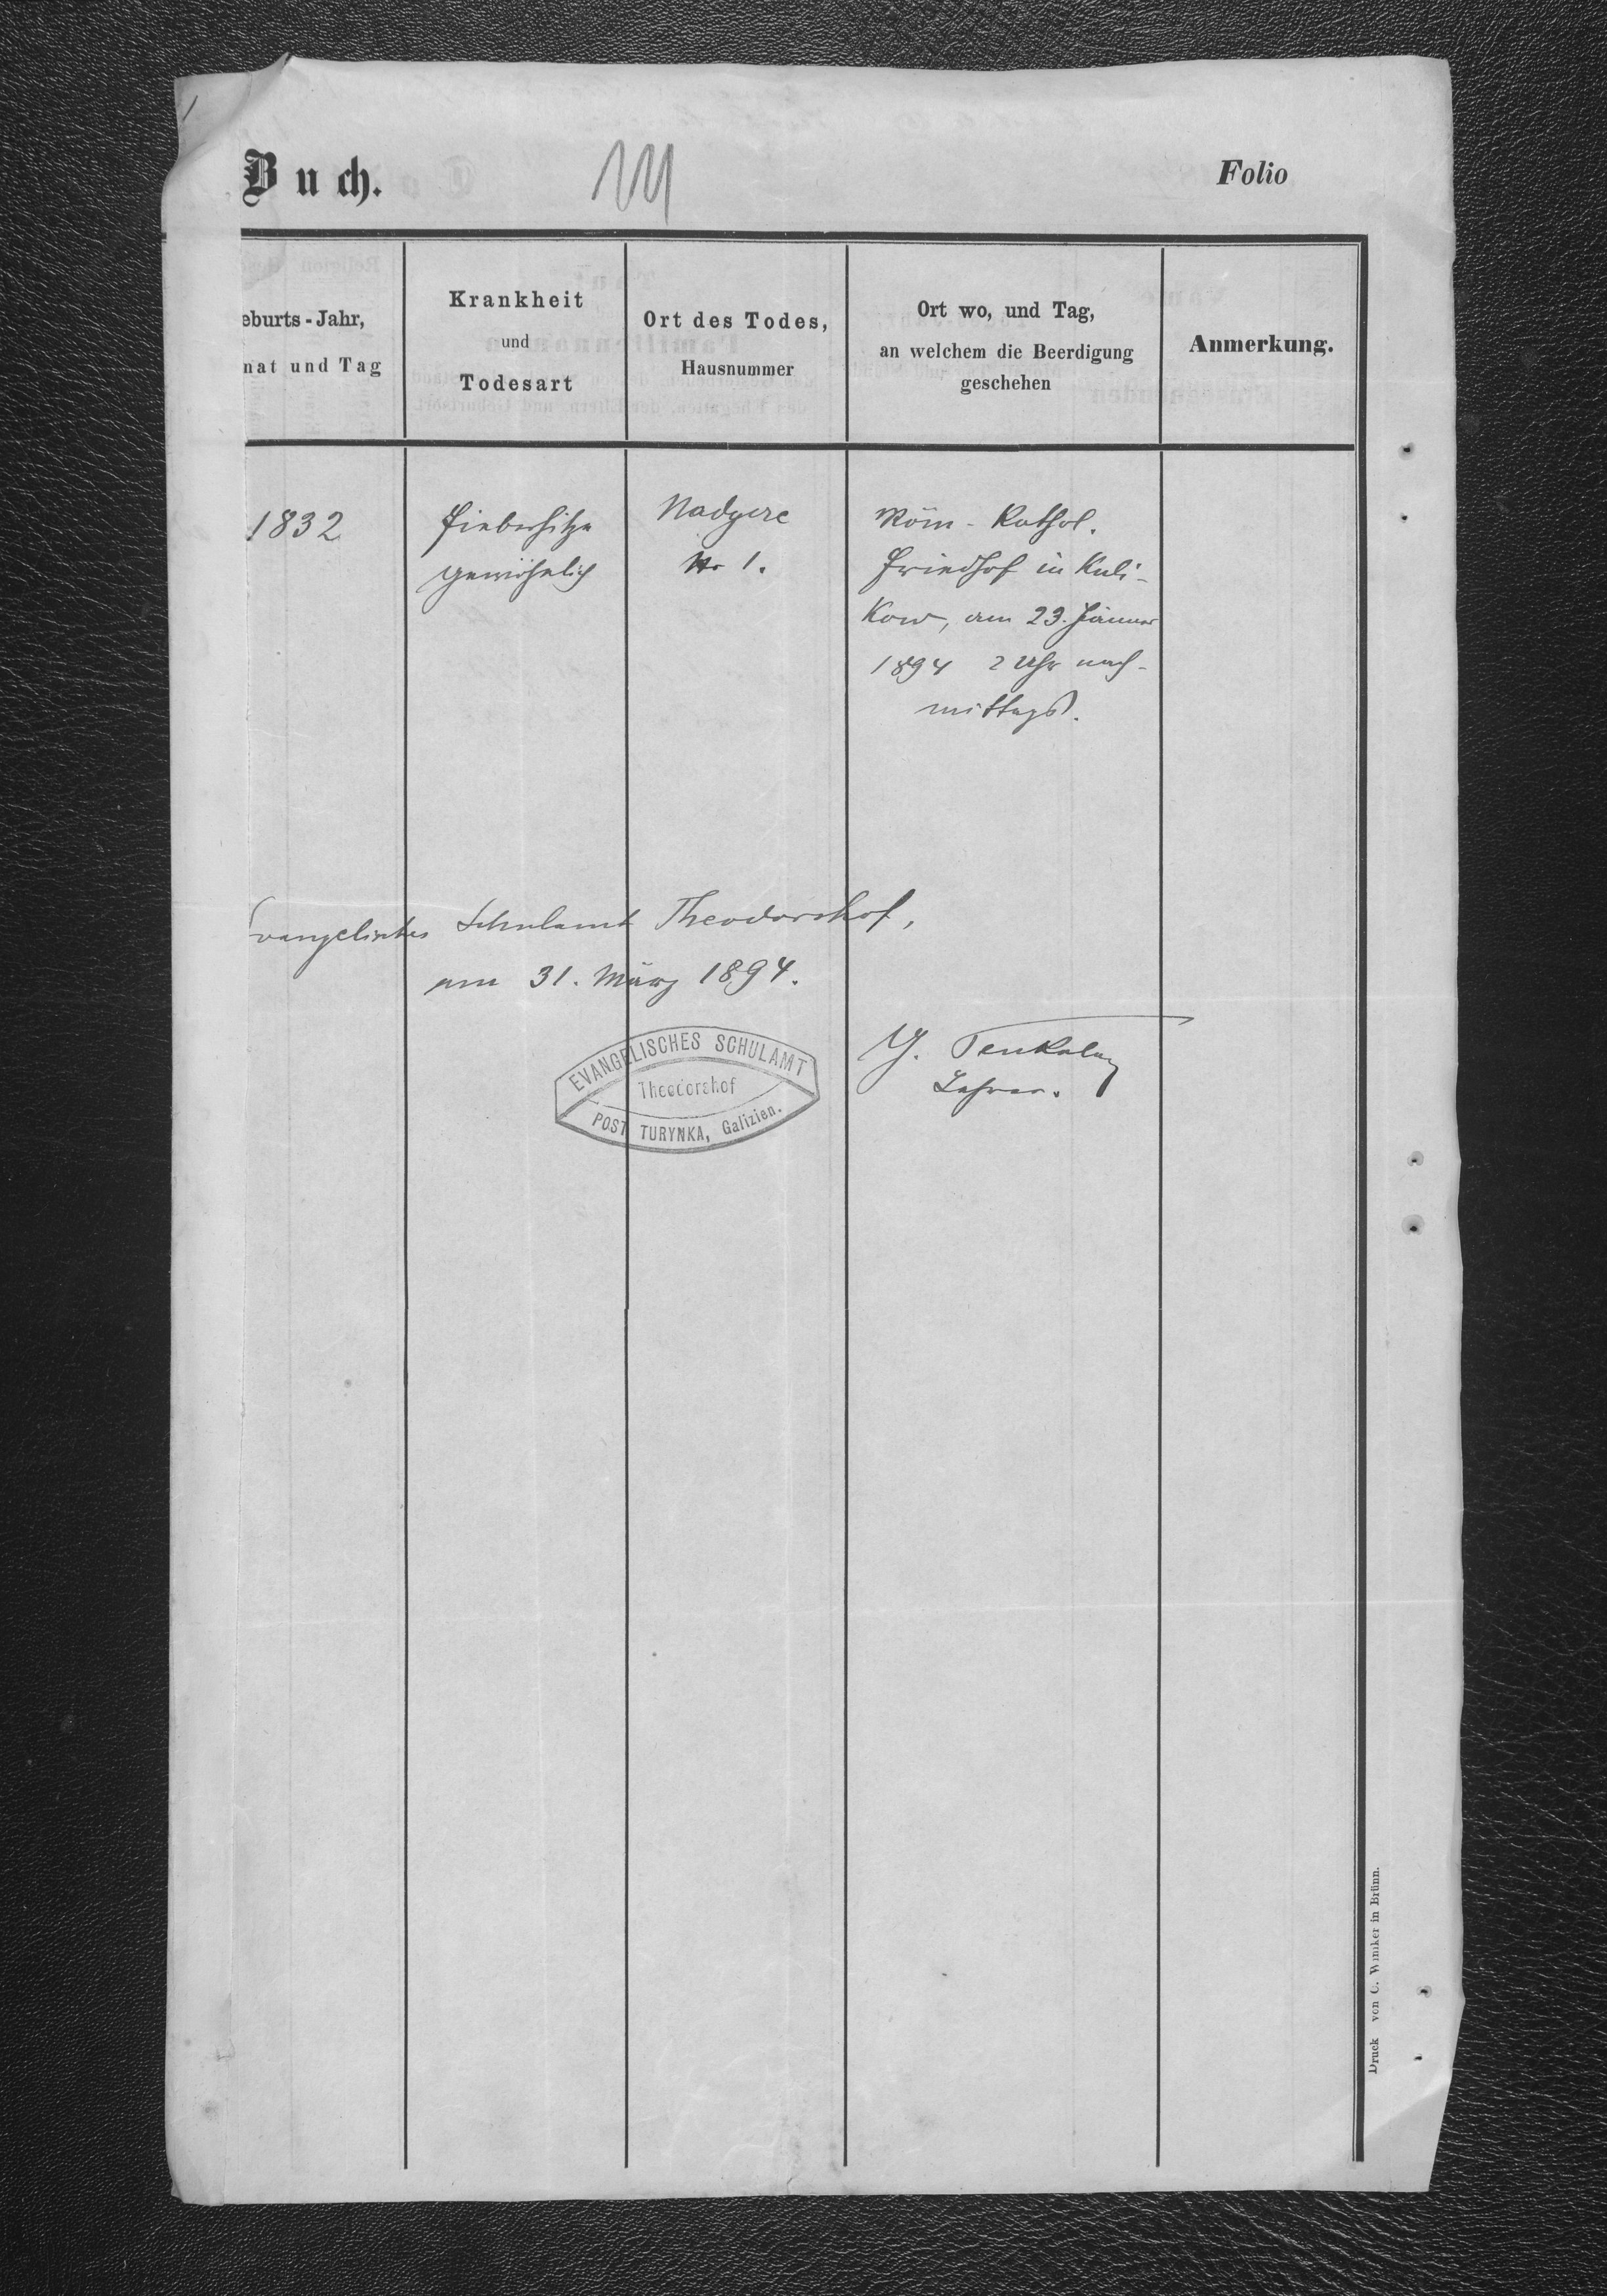 Buch.
Folio
eburts-Jahr,
nat und Tag
Krankheit
und
Todesart
Ort des Todes,
Hausnummer
Ort wo, und Tag,
an welchem die Beerdigung
geschehen
Anmerkung.
1832
Fieberhitze
gewöhnlich
Nadgere
No 1.
Röm-Kathol.
Friedhof in Kuli-
kow, am 23. Jänner
1894 2 Uhr nach-
mittags.
Evangelisches Schulamt Theodorshof,
am 31. März 1894.
EVANGELISCHES SCHULAMT
Theodorshof
POST TURYNKA, Galizien.
Lehrer.
Druck von C. Winiker in Brünn.